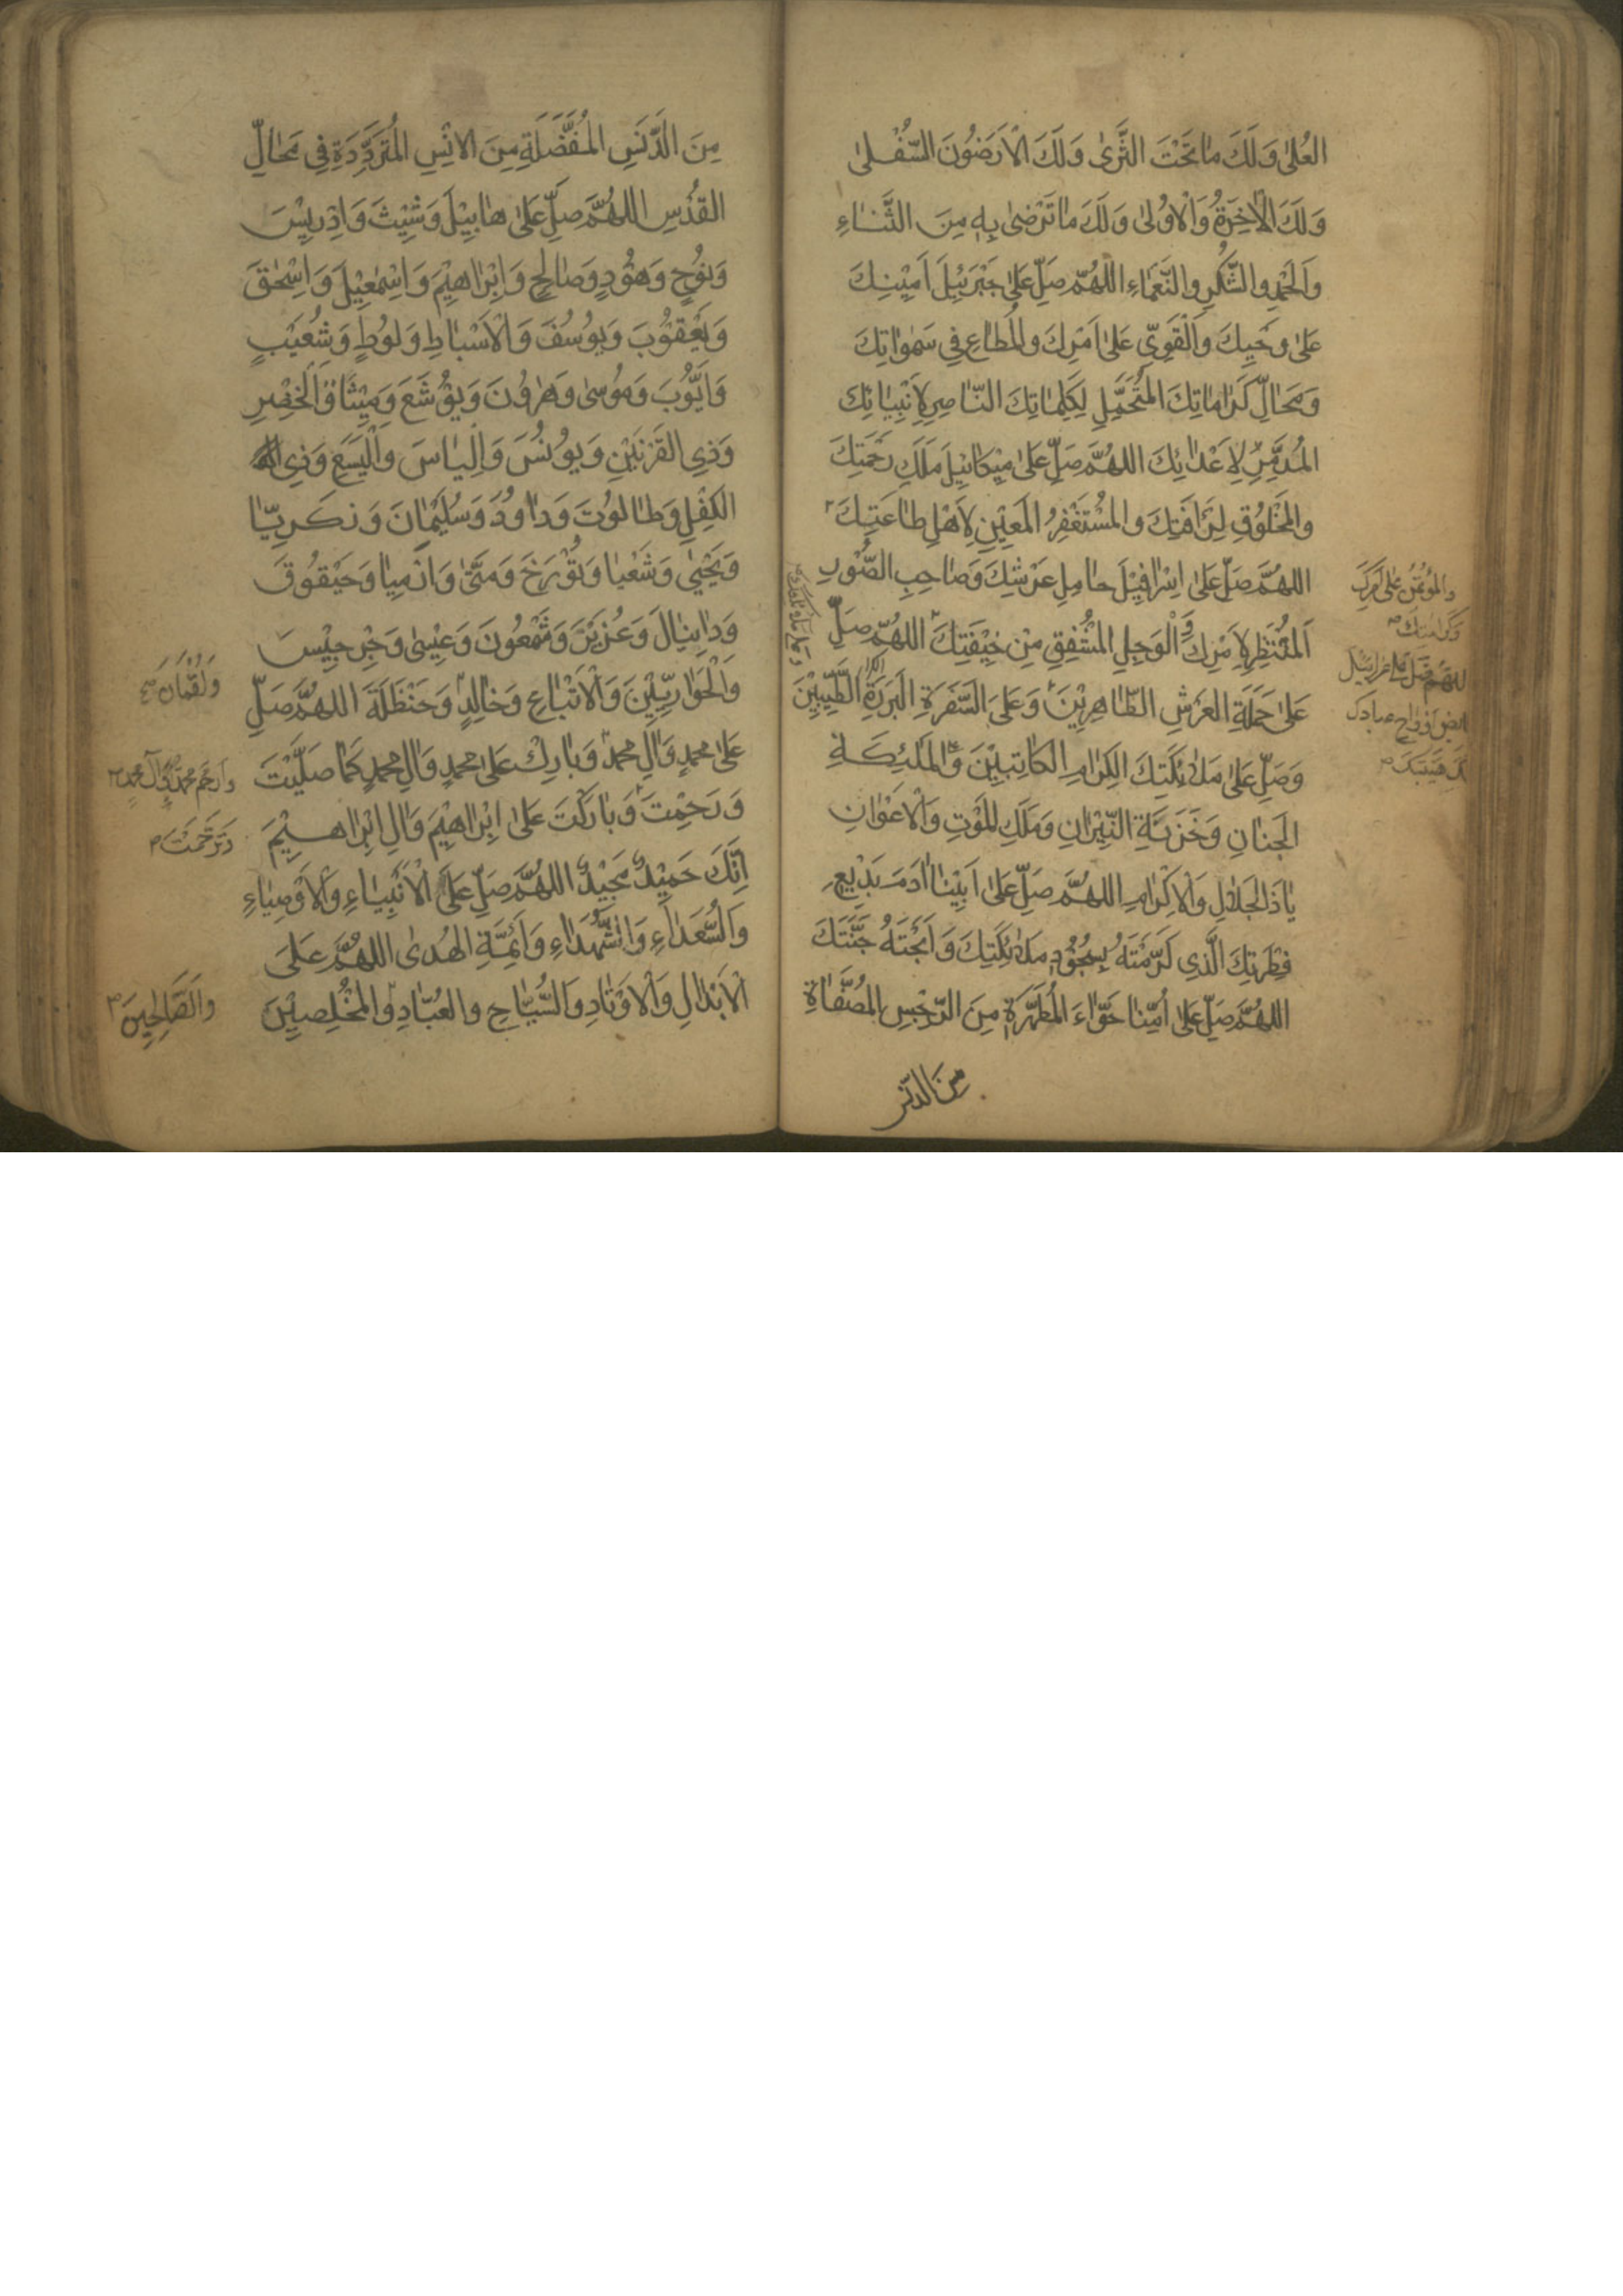 العُلىٰ وَلَكَ مَا تَحْتَ الثَّرىٰ وَلَكَ الْاَرَضُونَ السُّفْلىٰ
وَلَكَ الْاٰخِرَةُ وَالْاُولىٰ وَلَكَ مَا تَرْضىٰ بِهٖ مِنَ الثَّنَاءِ
وَالْحَمْدِ والشُّكْرِ والنَّعْمَاءِ اللّٰهُمَّ صَلِّ عَلىٰ جَبْرَئِيلَ اَمِيْنِكَ
عَلىٰ وَحْيِكَ وَالْقَوِيِّ عَلىٰ اَمْرِكَ والْمُطَاعِ فِي سَمٰوَاتِكَ
وَمَحَالِّ كَرَامَاتِكَ الْمُتَحَمِّلِ لِكَلِمَاتِكَ النَّاصِرِ لِاَنْبِيَائِكَ
الْمُدَمِّرِ لِاَعْدَائِكَ اللّٰهُمَّ صَلِّ عَلىٰ مِيْكَائِيْلَ مَلَكِ رَحْمَتِكَ
والْمَخْلُوْقِ لِرَأْفَتِكَ والْمُسْتَغْفِرِ الْمُعِيْنِ لِاَهْلِ طَاعَتِكَ
اللّٰهُمَّ صَلِّ عَلىٰ اِسْرَافِيْلَ حَامِلِ عَرْشِكَ وَصَاحِبِ الصُّوْرِ
الْمُنْتَظِرِ لِاَمْرِكَ وَالْوَجِلِ الْمُشْفِقِ مِنْ خِيْفَتِكَ اللّٰهُمَّ صَلِّ
عَلىٰ حَمَلَةِ العَرْشِ الطَّاهِرِيْنَ وَعَلىَ السَّفَرَةِ الكِرَامِ البَرَرَةِ الطَّيِّبِيْنَ
وَصَلِّ عَلىٰ مَلٰائِكَتِكَ الكِرَامِ الكَاتِبِيْنَ وَالْمَلٰئِكَةِ
الجِنَانِ وَخَزَنَةِ النِّيْرَانِ وَمَلَكِ الْمَوْتِ وَالْاَعْوَانِ
يَا ذَا الْجَلَالِ وَالْاِكْرَامِ اللّٰهُمَّ صَلِّ عَلىٰ اَبِيْنَا اٰدَمَ بَدِيْعِ
فِطْرَتِكَ الَّذِي كَرَّمْتَهُ بِسُجُوْدِ مَلٰائِكَتِكَ وَاَبَحْتَهُ جَنَّتَكَ
اللّٰهُمَّ صَلِّ عَلىٰ اُمِّنَا حَوَّاءَ الْمُطَهَّرَةِ مِنَ الرِّجْسِ الْمُصَفَّاةِ
مِنَ الدَّنَسِ
والْمُؤْتَمَنِ عَلىٰ
وَكَرَامَتِكَ
اللهم صل على عزرائيل
لقبض ارواح عبادك
مِنَ الدَّنَسِ الْمُفَضَّلَةِ مِنَ الْاِنْسِ الْمُتَرَدِّدَةِ فِي مَحَالِّ
القُدْسِ اللّٰهُمَّ صَلِّ عَلىٰ هَابِيْلَ وَشِيْثَ وَاِدْرِيْسَ
وَنُوْحٍ وَهُوْدٍ وَصَالِحٍ وَاِبْرَاهِيْمَ وَاِسْمٰعِيْلَ وَاِسْحٰقَ
وَيَعْقُوْبَ وَيُوْسُفَ وَالْاَسْبَاطِ وَلُوْطٍ وَشُعَيْبٍ
وَاَيُّوْبَ وَمُوْسىٰ وَهٰرُوْنَ وَيُوْشَعَ وَمِيْشَا وَالْخِضْرِ
وَذِي القَرْنَيْنِ وَيُوْنُسَ وَاِلْيَاسَ وَالْيَسَعِ وَذِي
الكِفْلِ وَطَالُوْتَ وَدَاوُدَ وَسُلَيْمَانَ وَزَكَرِيَّا
وَيَحْيىٰ وَشَعْيَا وَتُوْرَخَ وَمَتّىٰ وَاِرْمِيَا وَحَيْقُوقَ
وَدَانِيَالَ وَعُزَيْرَ وَشَمْعُونَ وَعِيْسىٰ وَجِرْجِيْسَ
وَالْحَوَارِيِّيْنَ وَالْاَتْبَاعِ وَخَالِدٍ وَحَنْظَلَةَ اللّٰهُمَّ صَلِّ
عَلىٰ مُحَمَّدٍ وَاٰلِ مُحَمَّدٍ وَبَارِكْ عَلىٰ مُحَمَّدٍ وَاٰلِ مُحَمَّدٍ كَمَا صَلَّيْتَ
وَرَحِمْتَ وَبَارَكْتَ عَلىٰ اِبْرَاهِيْمَ وَاٰلِ اِبْرَاهِيْمَ
اِنَّكَ حَمِيْدٌ مَجِيْدٌ اللّٰهُمَّ صَلِّ عَلَى الْاَنْبِيَاءِ وَالْاَوْصِيَاءِ
وَالسُّعَدَاءِ وَالشُّهَدَاءِ وَاَئِمَّةِ الهُدىٰ اللّٰهُمَّ عَلَى
الْاَبْدَالِ وَالْاَوْتَادِ وَالسُّيَّاحِ والعُبَّادِ والْمُخْلِصِيْنَ
وَلُقْمَانَ
وَارْحَمْ مُحَمَّدًا وَآلَ مُحَمَّدٍ
وَتَرَحَّمْتَ
والصَّالِحِينَ